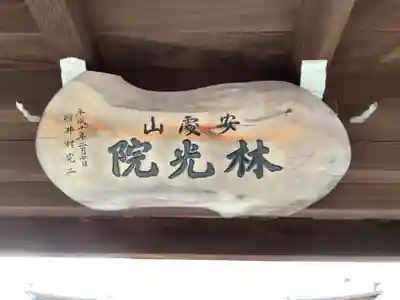 安慶山
林光院
平成十年二月吉日